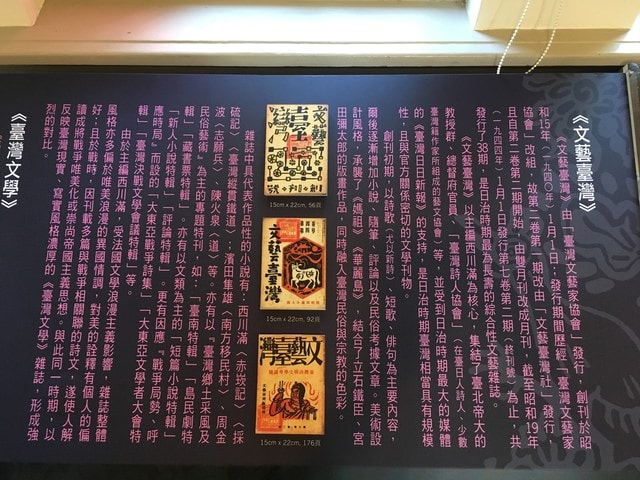 《文藝臺灣》
《文藝臺灣》由「臺灣文藝家協會」發行，創刊於昭
和15年（一九四〇年）1月1日；發行期間歷經「臺灣文藝家
協會」改組，故第二卷第一期改由「文藝臺灣社」發行，
且自第二卷第二期開始，由雙月刊改成月刊，截至昭和19年
（一九四四年）1月1日發行第七卷第二期（終刊號）為止，共
發行了38期，是日治時期最為長壽的綜合性文藝雜誌。
《文藝臺灣》以主編西川滿為核心，集結了臺北帝大的
教授群、總督府官員、「臺灣詩人協會」（在臺日人詩人、少數
臺灣籍作家所組成的藝文協會）等，並受到日治時期最大的媒體
的《臺灣日日新報》的支持，是日治時期臺灣相當具有規模
性，且與官方關係密切的文學刊物。
創刊初期，以詩歌（尤以新詩）、短歌、俳句為主要內容，
爾後逐漸增加小說、隨筆、評論以及民俗考據文章。美術設
計風格，承襲了《媽祖》、《華麗島》，結合了立石鐵臣、宮
田彌太郎的版畫作品，同時融入臺灣民俗與宗教的色彩。
文藝臺灣
15cm x 22cm, 56頁
文藝臺灣
15cm x 22cm, 92頁
文藝臺灣
15cm x 22cm, 176頁
雜誌中具代表作品性的小說有：西川滿〈赤崁記〉、〈採
硫記〉、〈臺灣縱貫鐵道〉；濱田隼雄〈南方移民村〉、周金
波〈志願兵〉、陳火泉〈道〉等。亦有以「臺灣鄉土采風及
民俗藝術」為主的專題特刊，如：「臺南特輯」、「島民劇特
輯」、「藏書票特輯」。亦有以文類為主的「短篇小說特輯」、
「新人小說特輯」、「評論特輯」。更有因應「戰爭局勢、呼
應時局」而設的「大東亞戰爭詩集」、「大東亞文學者大會特
輯」、「臺灣決戰文學會議特輯」等。
由於主編西川滿，受法國文學浪漫主義影響，雜誌整體
風格亦多偏於唯美浪漫的異國情調，對美的詮釋有個人的偏
好；且於戰時，因刊載多篇與戰爭相關聯的詩文，遂使人解
讀成將戰爭唯美化或崇尚帝國主義思想。與此同一時期，以
反映臺灣現實、寫實風格濃厚的《臺灣文學》雜誌，形成強
烈的對比。
《臺灣文學》